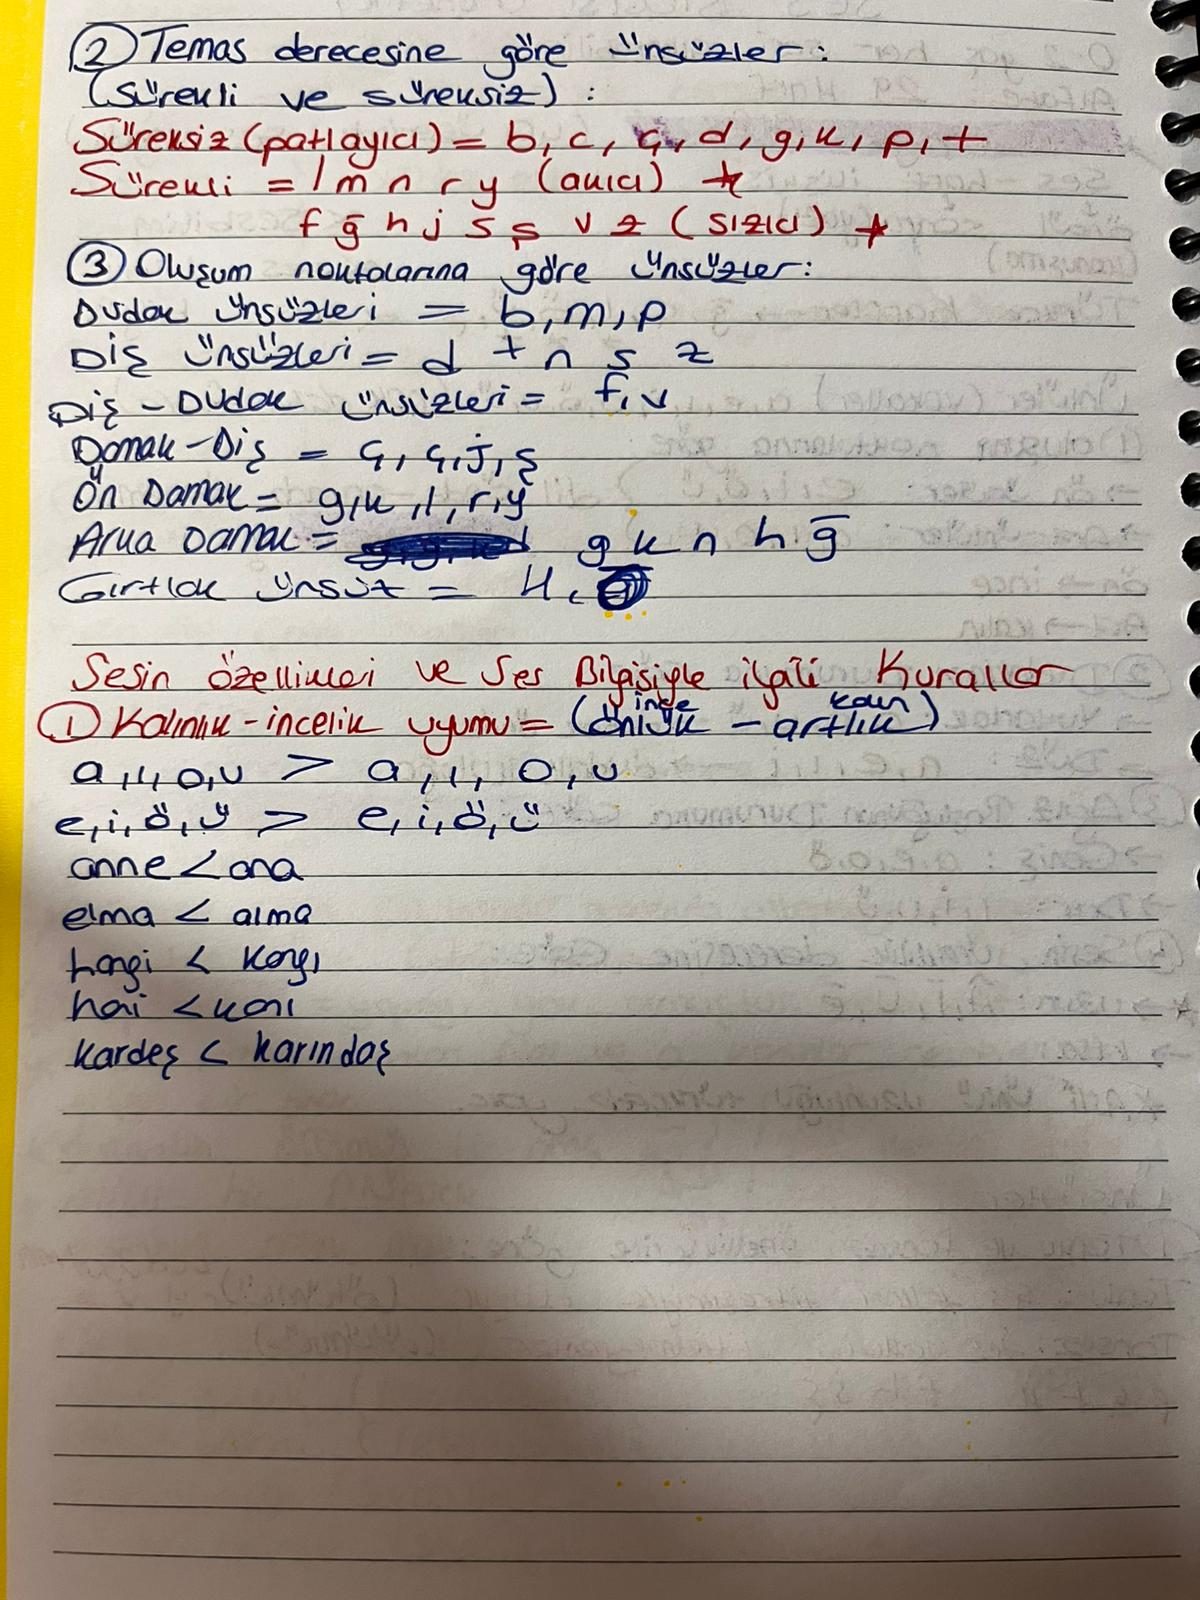 ② Temas derecesine göre ünsüzler:
(sürekli ve süreksiz):
Süreksiz (patlayıcı) = b, c, ç, d, g, k, p, t
Sürekli = l m n r y (akıcı) ★
f ğ h j s ş v z (sızıcı) ★
③ Oluşum noktalarına göre ünsüzler:
Dudak ünsüzleri = b, m, p
Diş ünsüzleri = d t n s z
Diş-Dudak ünsüzleri = f, v
Damak-Diş = ç, ç, j, ş
Ön Damak = g, k, l, r, y
Arka Damak = g k n h ğ
Gırtlak ünsüz = H,
Sesin özellikleri ve Ses Bilgisiyle ilgili Kurallar
① Kalınlık-incelik uyumu = (önlük ince - artlık kalın)
a, ı, o, u > a, ı, o, u
e, i, ö, ü > e, i, ö, ü
anne < ana
elma < alma
hangi < kangı
hani < kanı
kardeş < karındaş